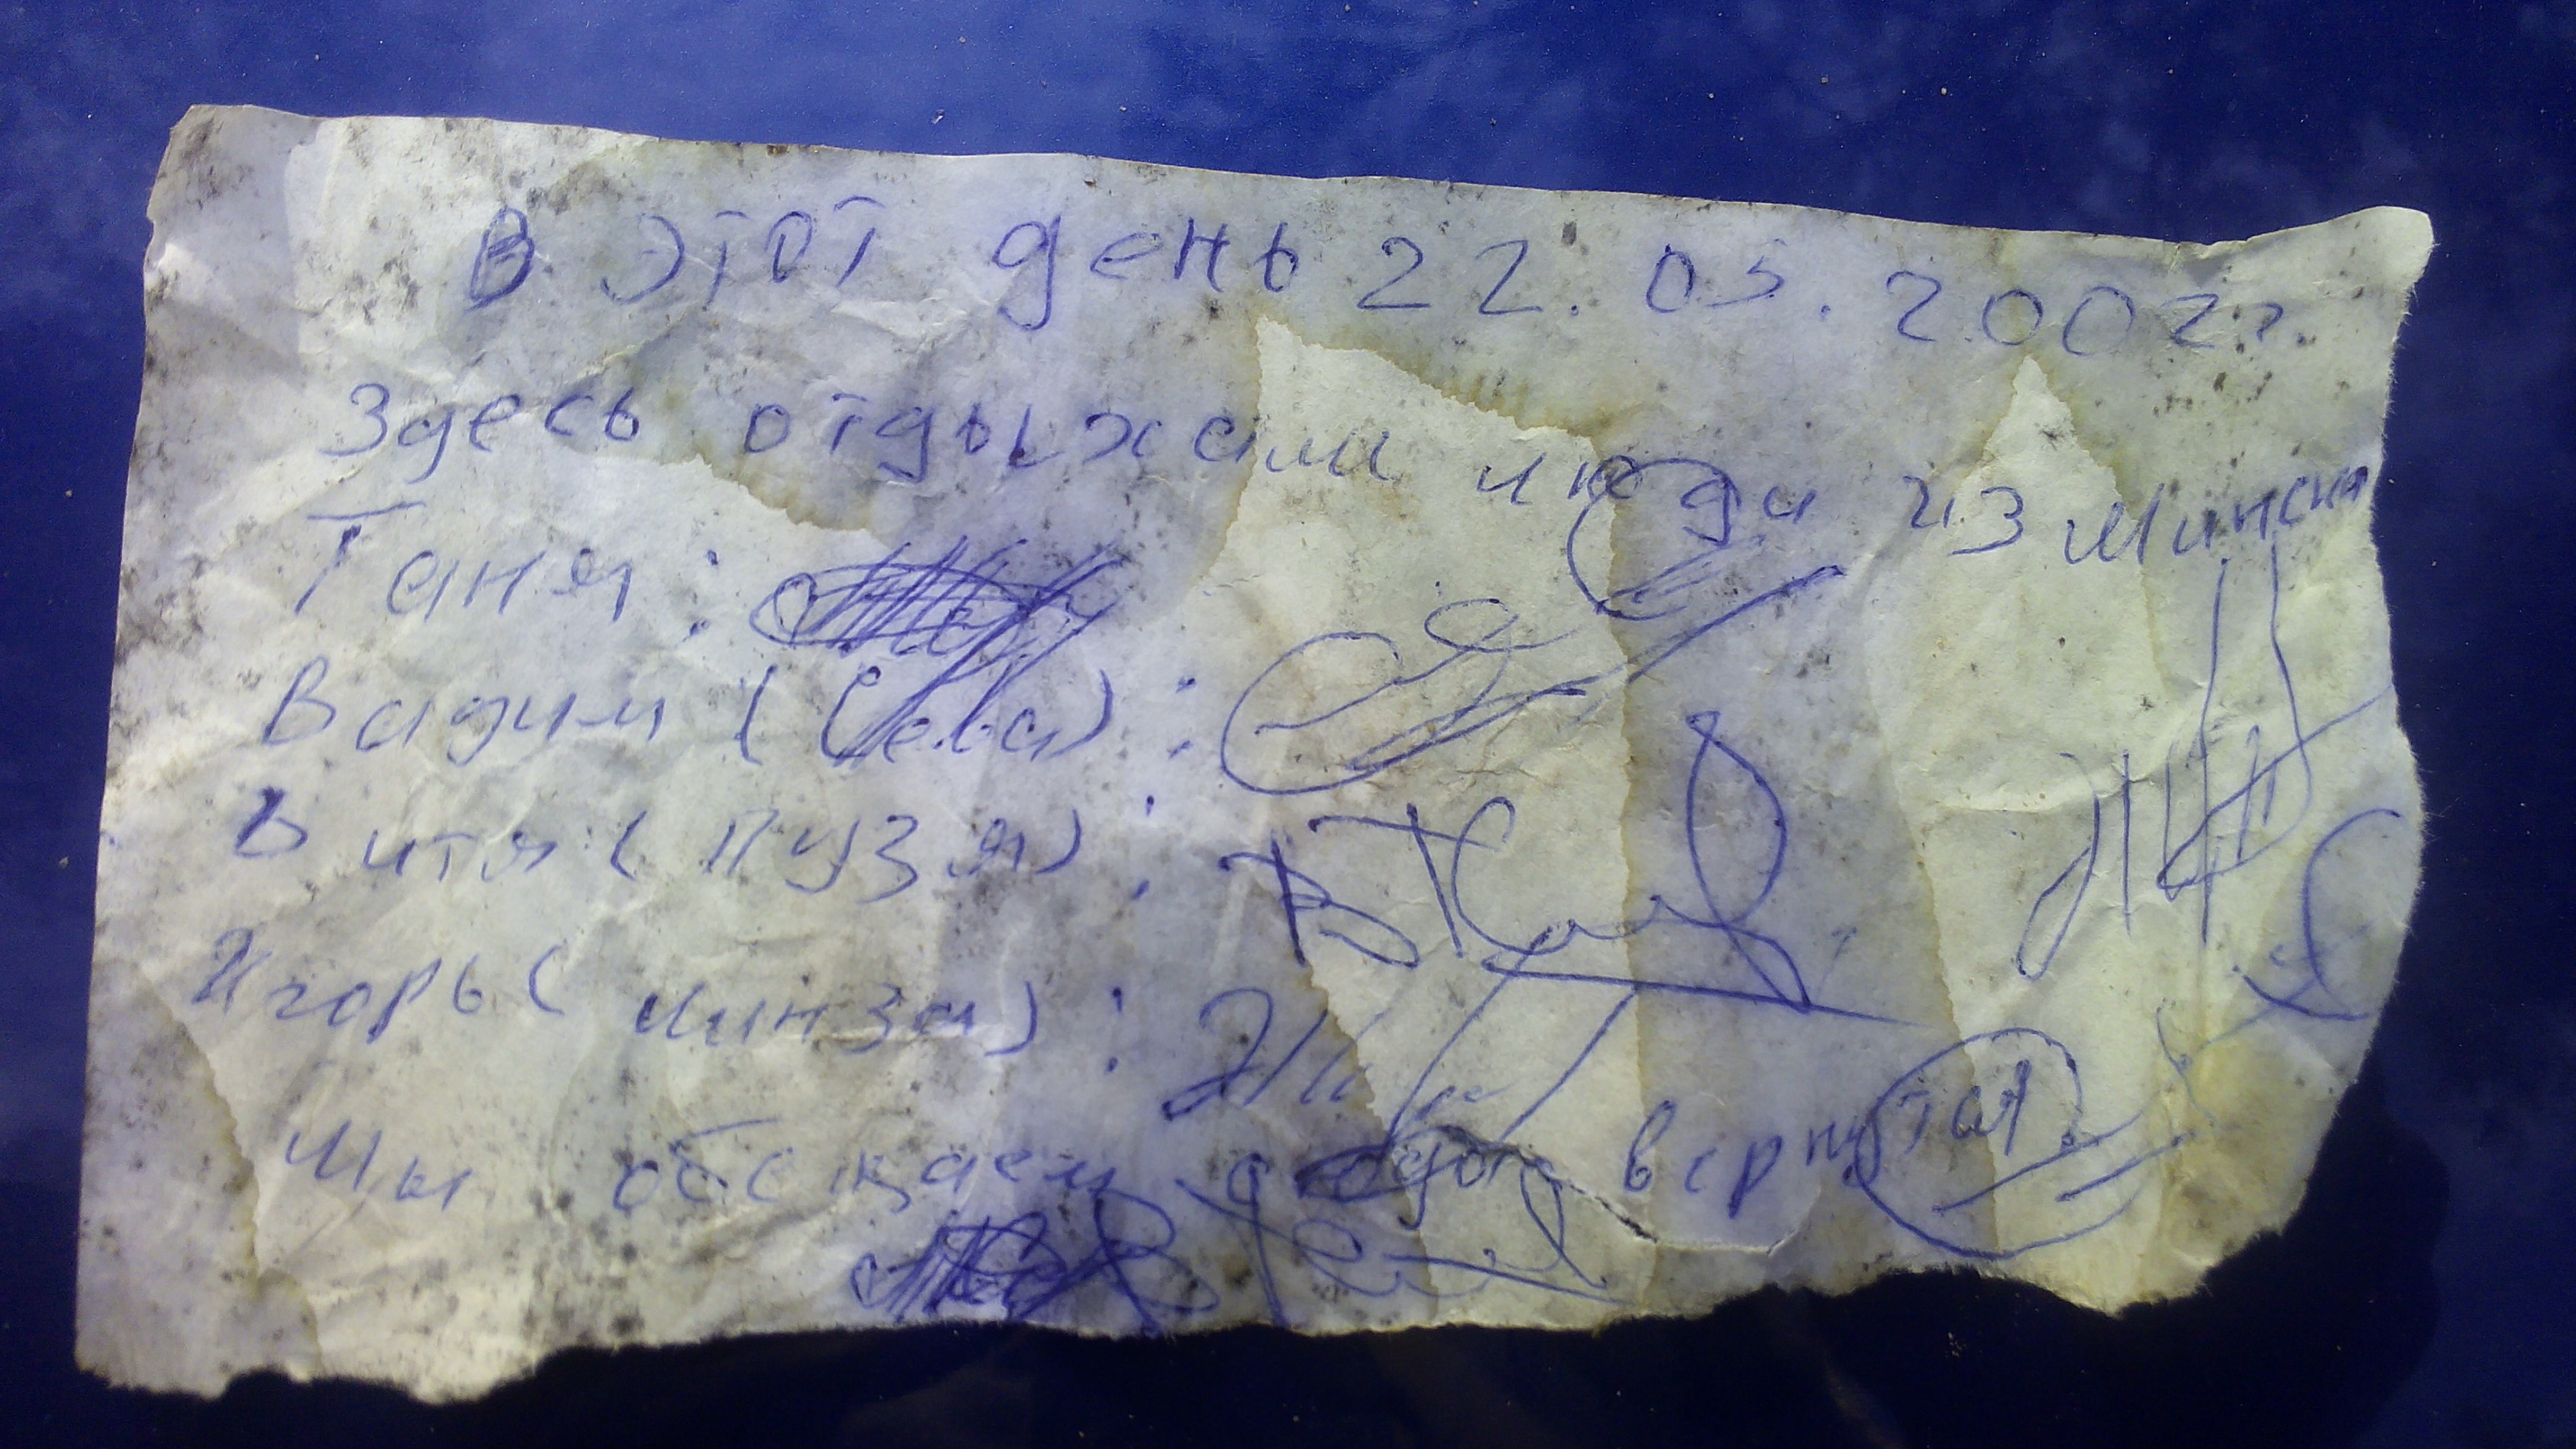 В этот день 22.05.2002г.
Здесь отдыхали люди из Минска
Таня:
Вадим (Сева):
Витя (Пузя):
Игорь (Линза):
Мы обещаем сюда вернутся